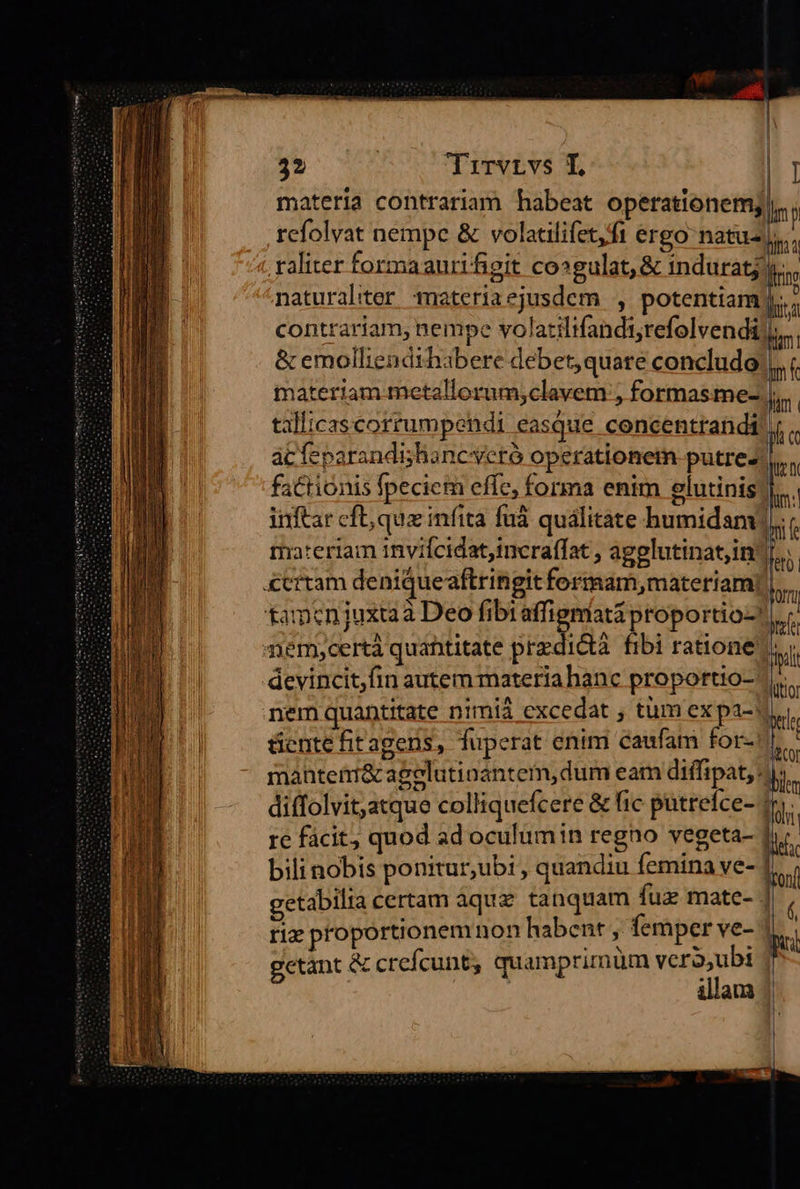 32 TITVLVS I.
materia contrariam habeat operationem,
reſolvat nempe & volatiliſet, ſi ergo natu-
raliter forma auri figit coagulat, & indurat,
naturaliter materia ejusdem , potentiam
contrariam, nempe volatiliſandi, reſolvendi
& emolliendi habere debet, quare concludo
materiam metallorum, clavem , formas me-
tallicas corrumpendi easque concentrandi
ac ſeparandi; hanc verò operationem putre-
factionis ſpeciem eſſe, forma enim glutinis
inſtar eſt, quæ inſita ſuâ qualitate humidam
materiam inviſcidat, incraſſat , agglutinat, in
certam denique aſtringit formam, materiam
tamen juxta à Deo ſibi aſſignatâ proportio-
nem, certâ quantitate prædictâ ſibi ratione
devincit, ſin autem materia hanc proportio-
nem quantitate nimiâ excedat , tum ex pa-
tiente fit agens, ſuperat enim cauſam for-
mantem & agglutinantem, dum eam diſſipat,
diſſolvit, atque colliqueſcere & ſic putreſce-
re facit, quod ad oculum in regno vegeta-
bili nobis ponitur, ubi , quandiu ſemina ve-
getabilia certam aquæ tanquam ſuæ mate-
riæ proportionem non habent , ſemper ve-
getant & creſcunt, quamprimùm verò, ubi
illam